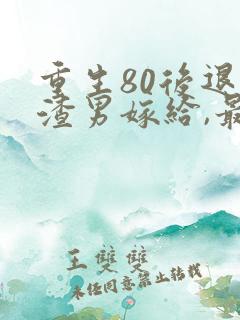 重生80後退
渣男嫁給,最
王雙雙
未经同意禁止转载